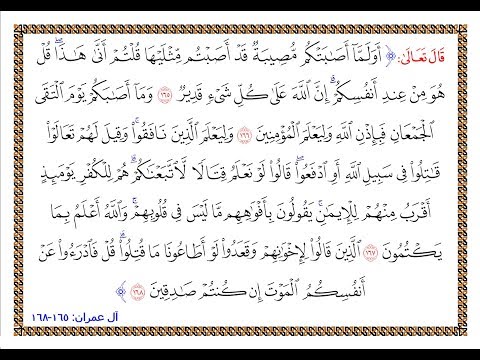 قَالَ تَعَالَىٰ: ﴿ أَوَلَمَّا أَصَٰبَتْكُم مُّصِيبَةٌ قَدْ أَصَبْتُم مِّثْلَيْهَا قُلْتُمْ أَنَّىٰ هَٰذَا ۖ قُلْ
هُوَ مِنْ عِندِ أَنفُسِكُمْ ۗ إِنَّ ٱللَّهَ عَلَىٰ كُلِّ شَىْءٍ قَدِيرٌ ١٦٥ وَمَآ أَصَٰبَكُمْ يَوْمَ ٱلْتَقَى
ٱلْجَمْعَانِ فَبِإِذْنِ ٱللَّهِ وَلِيَعْلَمَ ٱلْمُؤْمِنِينَ ١٦٦ وَلِيَعْلَمَ ٱلَّذِينَ نَافَقُوا۟ ۚ وَقِيلَ لَهُمْ تَعَالَوْا۟
قَٰتِلُوا۟ فِى سَبِيلِ ٱللَّهِ أَوِ ٱدْفَعُوا۟ ۖ قَالُوا۟ لَوْ نَعْلَمُ قِتَالًا لَّٱتَّبَعْنَٰكُمْ ۗ هُمْ لِلْكُفْرِ يَوْمَئِذٍ
أَقْرَبُ مِنْهُمْ لِلْإِيمَٰنِ ۚ يَقُولُونَ بِأَفْوَٰهِهِم مَّا لَيْسَ فِى قُلُوبِهِمْ ۗ وَٱللَّهُ أَعْلَمُ بِمَا
يَكْتُمُونَ ١٦٧ ٱلَّذِينَ قَالُوا۟ لِإِخْوَٰنِهِمْ وَقَعَدُوا۟ لَوْ أَطَاعُونَا مَا قُتِلُوا۟ ۗ قُلْ فَٱدْرَءُوا۟ عَنْ
أَنفُسِكُمُ ٱلْمَوْتَ إِن كُنتُمْ صَٰدِقِينَ ١٦٨ ﴾
آل عمران: ١٦٥-١٦٨